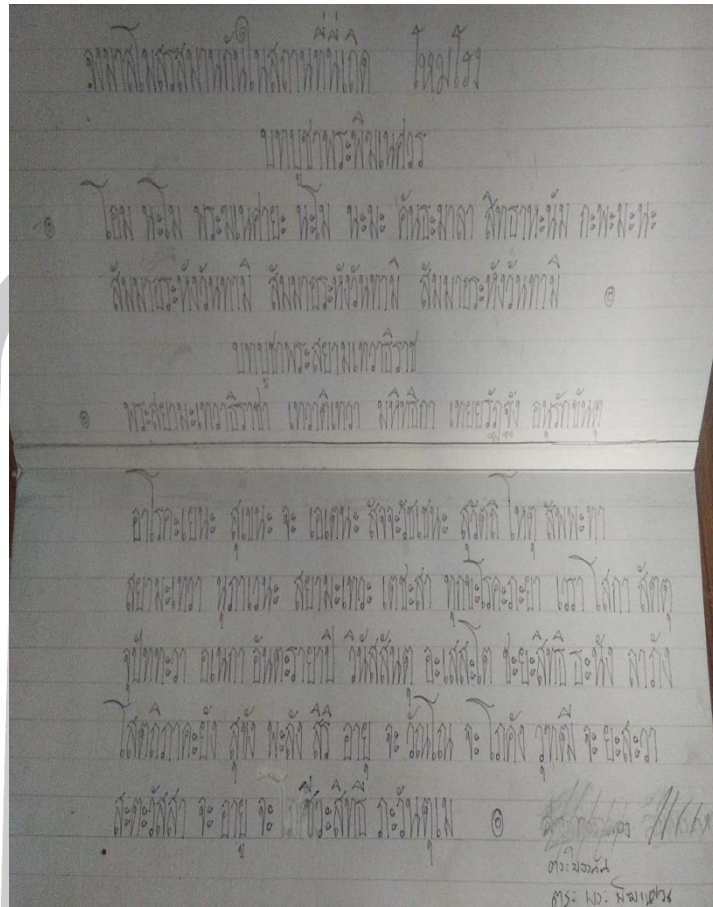 จงมาสโมสรสมานกันในสถานที่นี่เถิด โหมโรง
บทบูชาพระพิฆเนศวร
๏ โอม นะโม พระฆเนศายะ นะโม นะมะ คันธะมาลา สิทธานะนัม กะพะมะนะ
สัมมาอะระหังวันทามิ สัมมาอะระหังวันทามิ สัมมาอะระหังวันทามิ ๏
บทบูชาพระสยามเทวาธิราช
๏ พระสยามะเทวาธิราชา เทวาติเทวา มหิทธิกา เทยยรัฏฐัง อนุรักขันตุ
อาโรคะเยนะ สุเขนะ จะ เอเตนะ สัจจะวัชเชนะ สุวัตถิ โหตุ สัพพะทา
สยามะเทวา นุภาเวนะ สยามะเทวะ เตชะสา ทุกขะโรคะภะยา เวรา โสกา สัตตุ
จุปัททะวา อเนกา อันตะรายาปิ วินัสสันตุ อะเสสะโต ชะยะสิทธิ ธะนัง ลาภัง
โสตถิภาคะยัง สุขัง พะลัง สิริ อายุ จะ วัณโณ จะ โภคัง วุฑฒี จะ ยะสะวา
สะตะวัสสา จะ อายู จะ ชีวะสิทธี ภะวันตุเม ๏